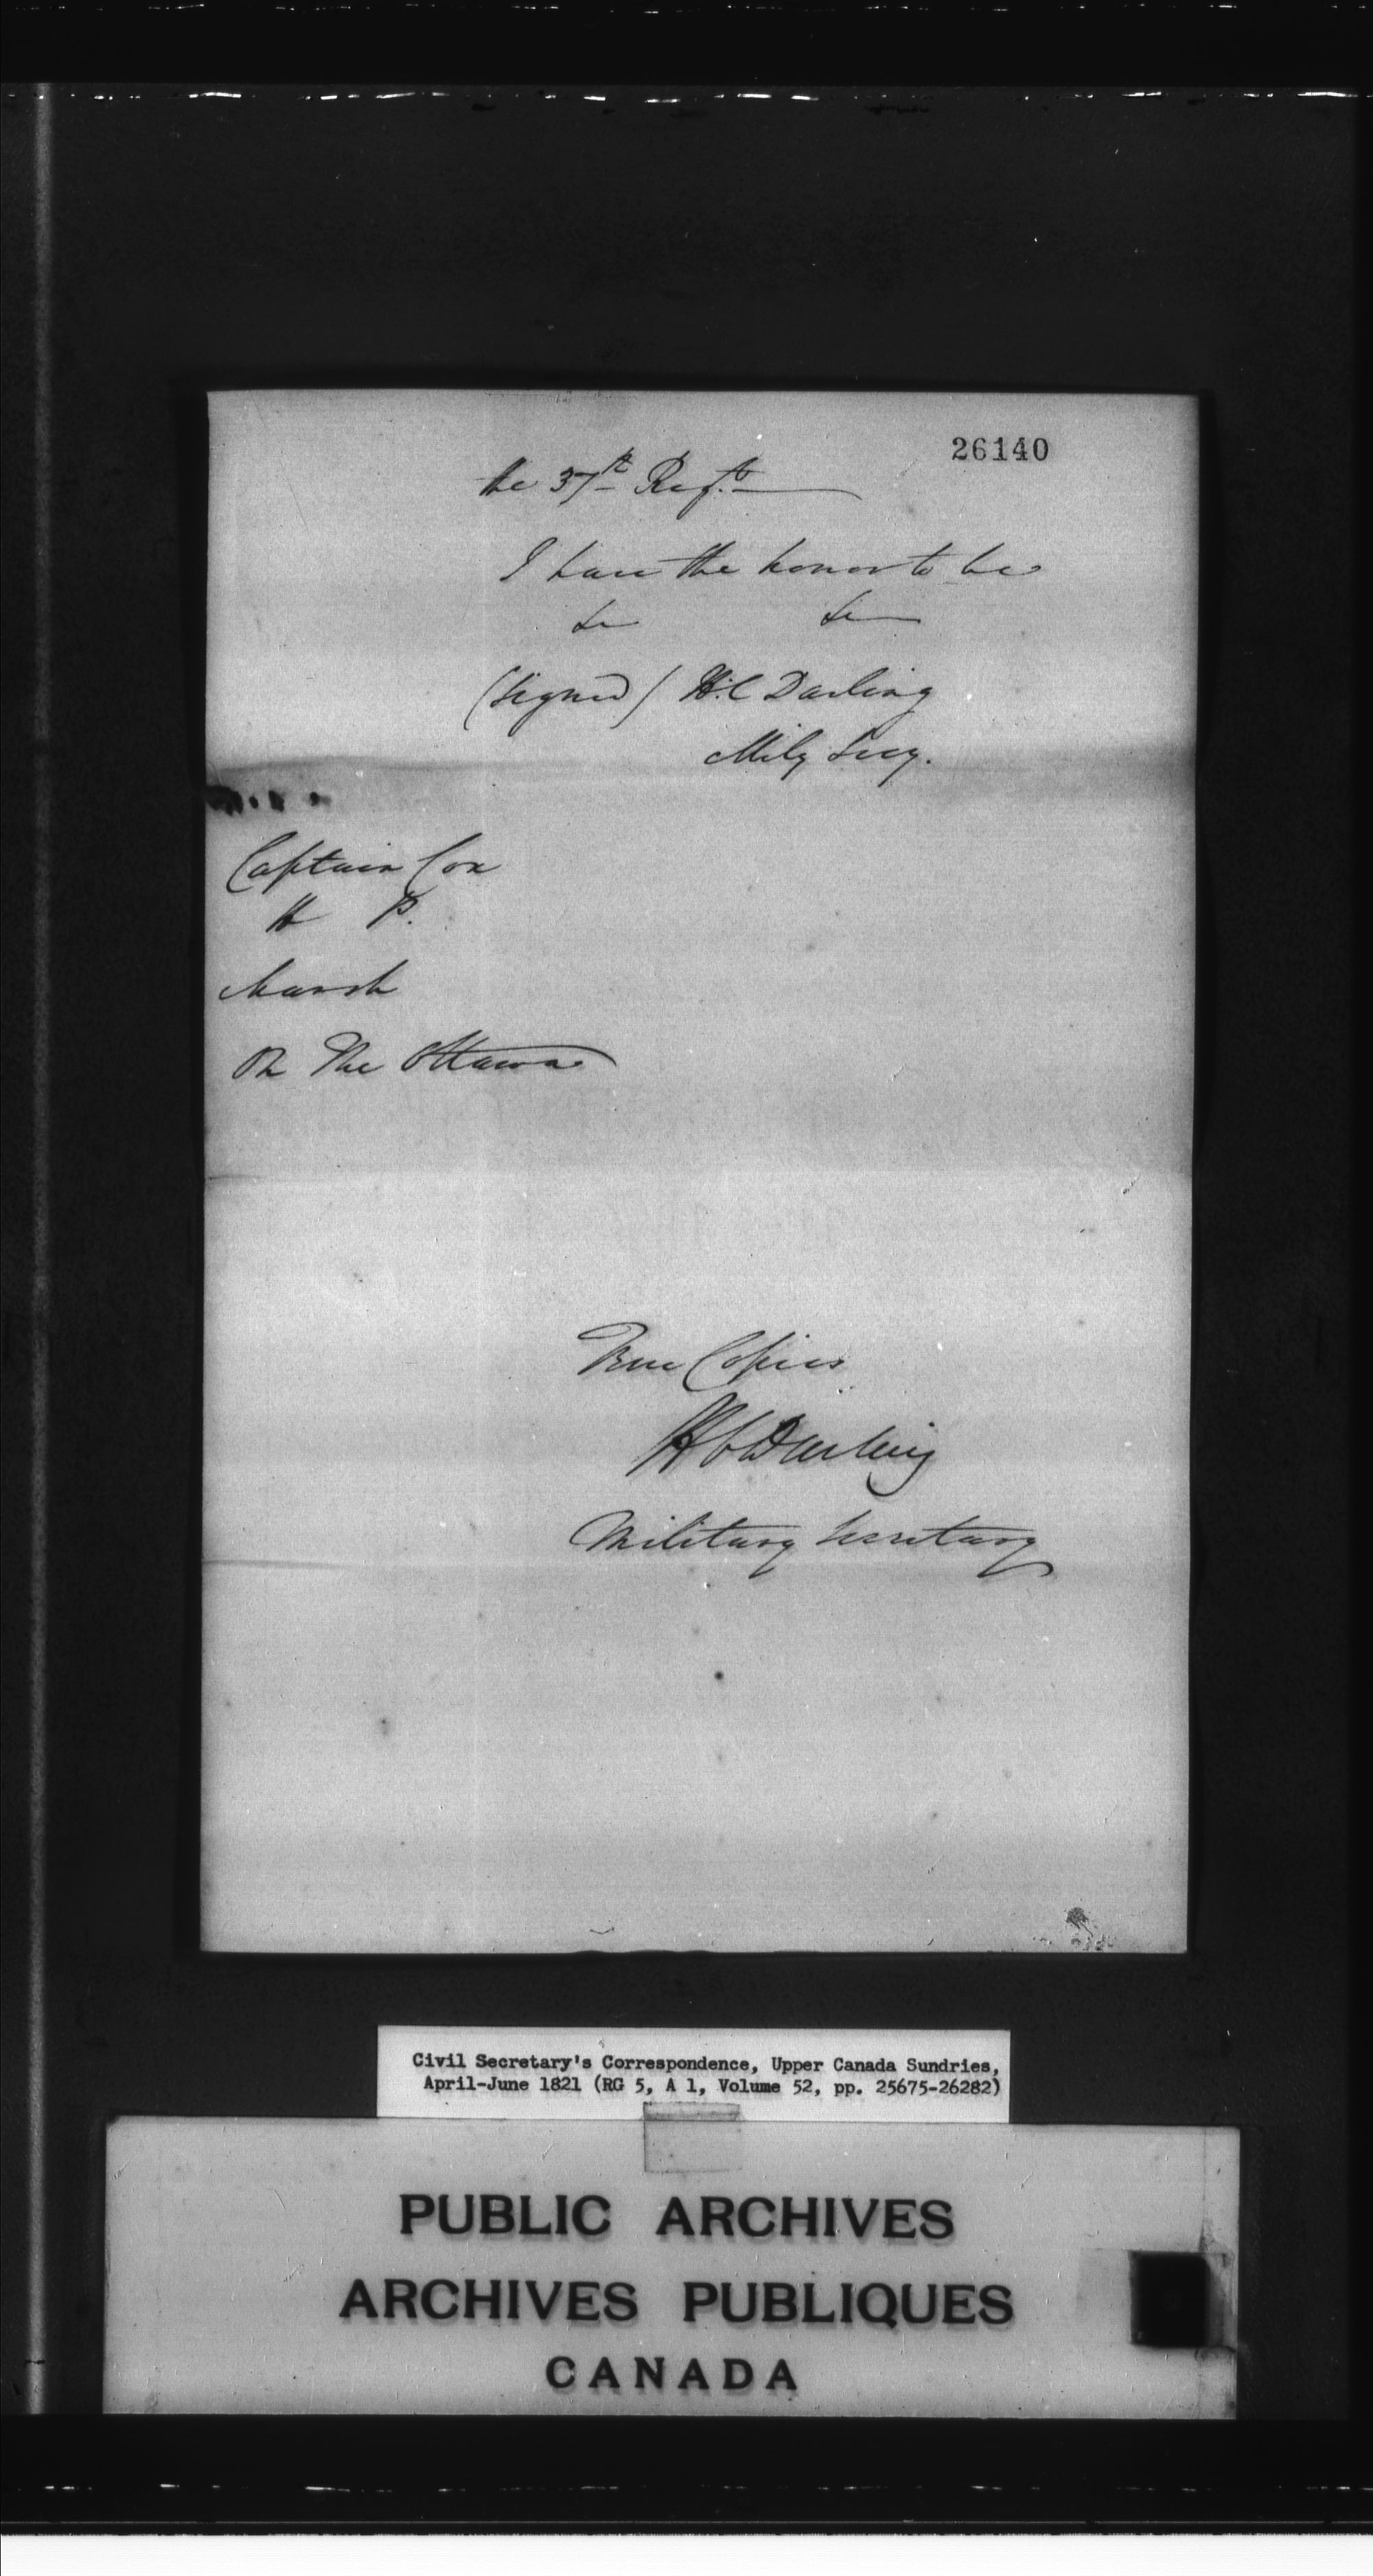 26140
the 37th Regt.
I have the honor to be
&c &c
(signed) H.C Darling
Mily Secy.
Captain Cox
H P.
March
On The Ottawa
True Copies
HC Darling
Military Secretary
Civil Secretary's Correspondence, Upper Canada Sundries,
April-June 1821 (RG 5, A 1, Volume 52, pp. 25675-26282)
PUBLIC ARCHIVES
ARCHIVES PUBLIQUES
CANADA